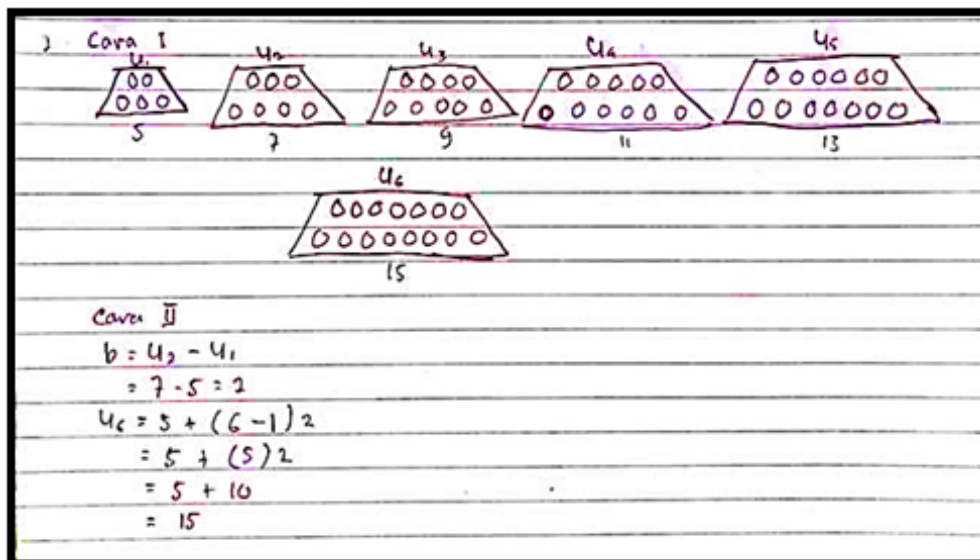 ) Cara I
U1 U2 U3 U4 U5
5 7 9 11 13
U6
15
Cara II
b = U2 - U1
= 7 - 5 = 2
U6 = 5 + (6 - 1) 2
= 5 + (5) 2
= 5 + 10
= 15